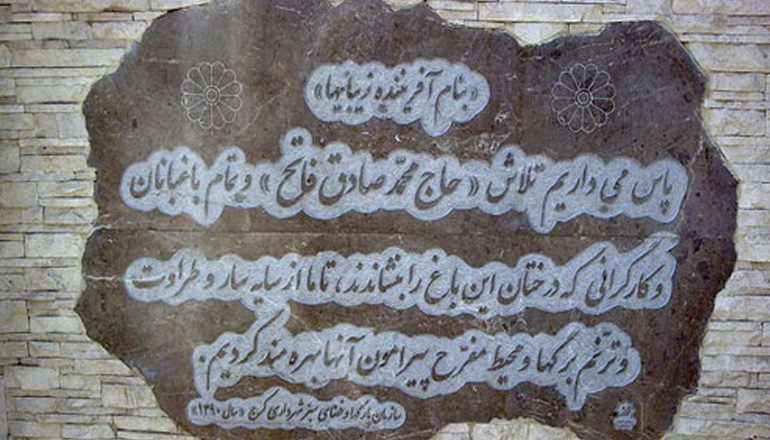 «بنام آفریننده زیباییها»
پاس می داریم تلاش «حاج محمّد صادق فاتح» و تمام باغبانان
و کارگرانی که درختان این باغ را بنشاندند، تا ما از سایه سار و طراوت
و ترنّم برگها و محیط مفرح پیرامون آنها بهره مند گردیم.
سازمان پارکها و فضای سبز شهرداری کرج «سال ۱۳۹۰»